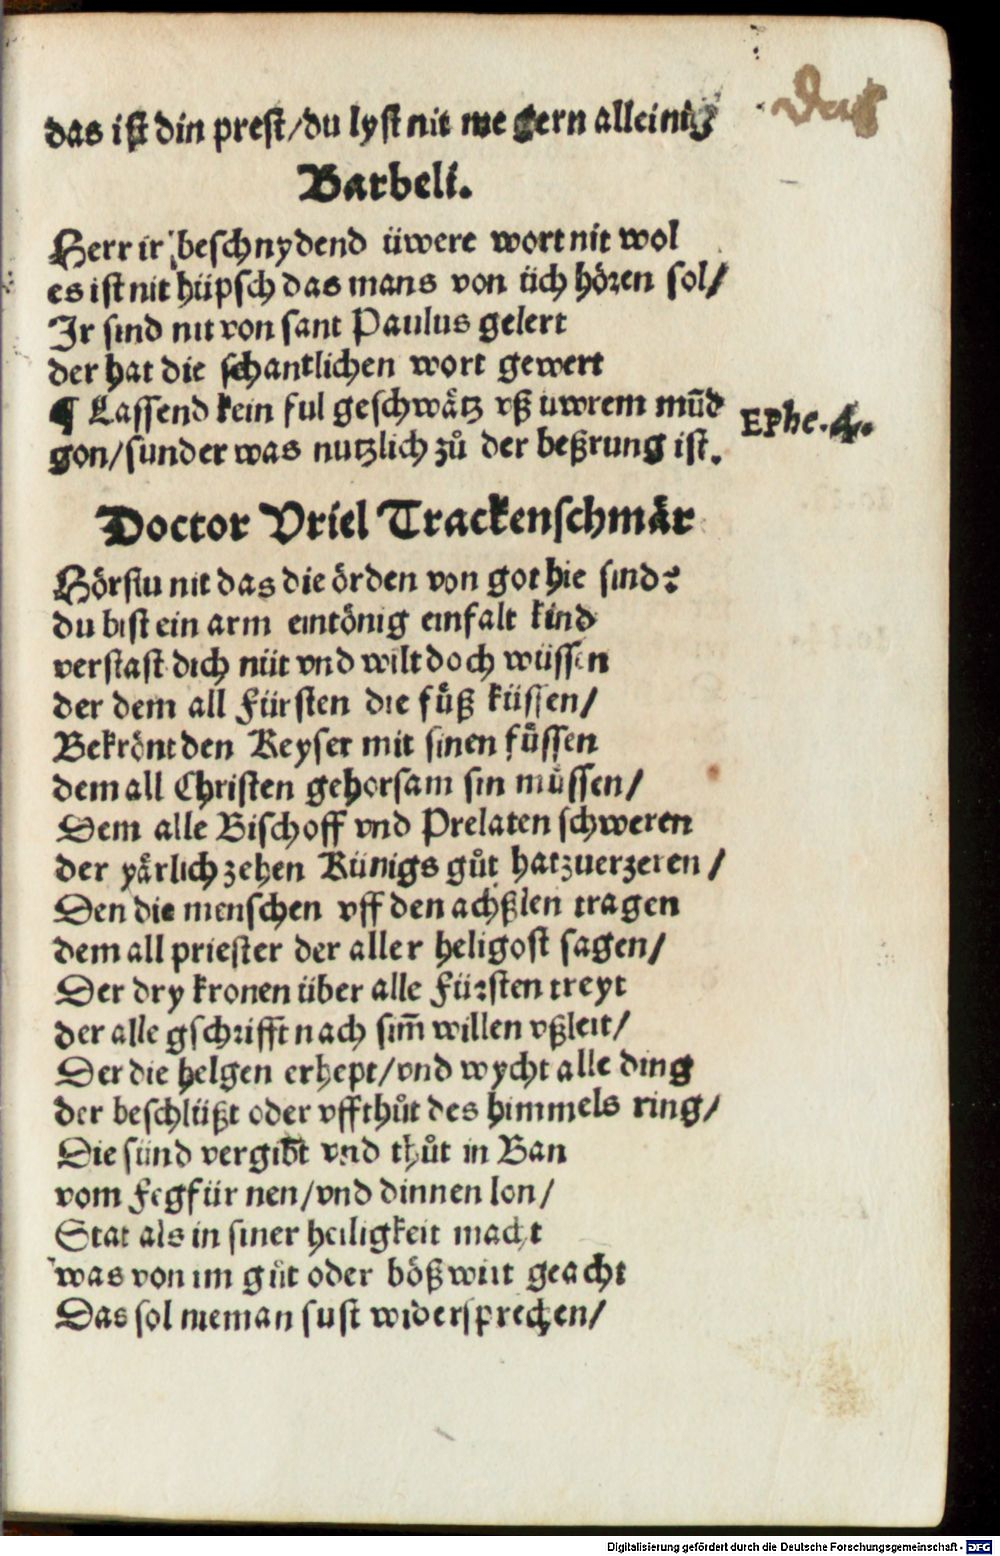 Das
das ist din prest/du lyst nit me gern alleinig
Barbeli.
Herr ir beschnydend üwere wort nit wol
es ist nit hüpsch das mans von üch hören sol/
Jr sind nit von sant Paulus gelert
der hat die schantlichen wort gewert
¶ Lassend kein ful geschwätz vß üwrem mūd
gon/sunder was nutzlich zů der beßrung ist.
Ephe.4.
Doctor Vriel Trackenschmär
Hörstu nit das die örden von got hie sind?
du bist ein arm eintönig einfalt kind
verstast dich nüt vnd wilt doch wüssen
der dem all Fürsten die fůß küssen/
Bekrönt den Keyser mit sinen fůssen
dem all Christen gehorsam sin můssen/
Dem alle Bischoff vnd Prelaten schweren
der yärlich zehen Künigs gůt hat zuerzeren/
Den die menschen vff den achßlen tragen
dem all priester der aller heligost sagen/
Der dry kronen über alle Fürsten treyt
der alle gschrifft nach sim̄ willen vßleit/
Der die helgen erhept/vnd wycht alle ding
der beschlüßt oder vffthůt des himmels ring/
Die sünd vergibt vnd thůt in Ban
vom Fegfür nen/vnd dinnen lon/
Stat als in siner heiligkeit macht
was von im gůt oder bößwirt geacht
Das sol nieman sust widersprechen/
Digitalisierung gefördert durch die Deutsche Forschungsgemeinschaft - DFG